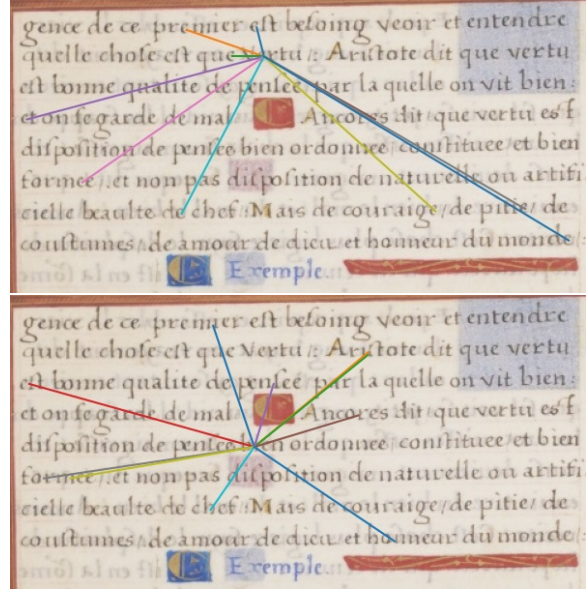 gence de ce premier est besoing veoir et entendre
quelle chose est que vertu : Aristote dit que vertu
est bonne qualite de pensee / par la quelle on vit bien :
et on se garde de mal Ancores dit que vertu est
disposition de pensee bien ordonnee constituee et bien
formee / et non pas disposition de naturelle ou artifi
cielle beaulte de chef : Mais de couraige / de pitie / de
coustumes / de amour de dieu et honneur du monde :
Exemple
gence de ce premier est besoing veoir et entendre
quelle chose est que vertu : Aristote dit que vertu
est bonne qualite de pensee / par la quelle on vit bien :
et on se garde de mal Ancores dit que vertu est
disposition de pensee bien ordonnee constituee et bien
formee / et non pas disposition de naturelle ou artifi
cielle beaulte de chef : Mais de couraige / de pitie / de
coustumes / de amour de dieu et honneur du monde :
Exemple